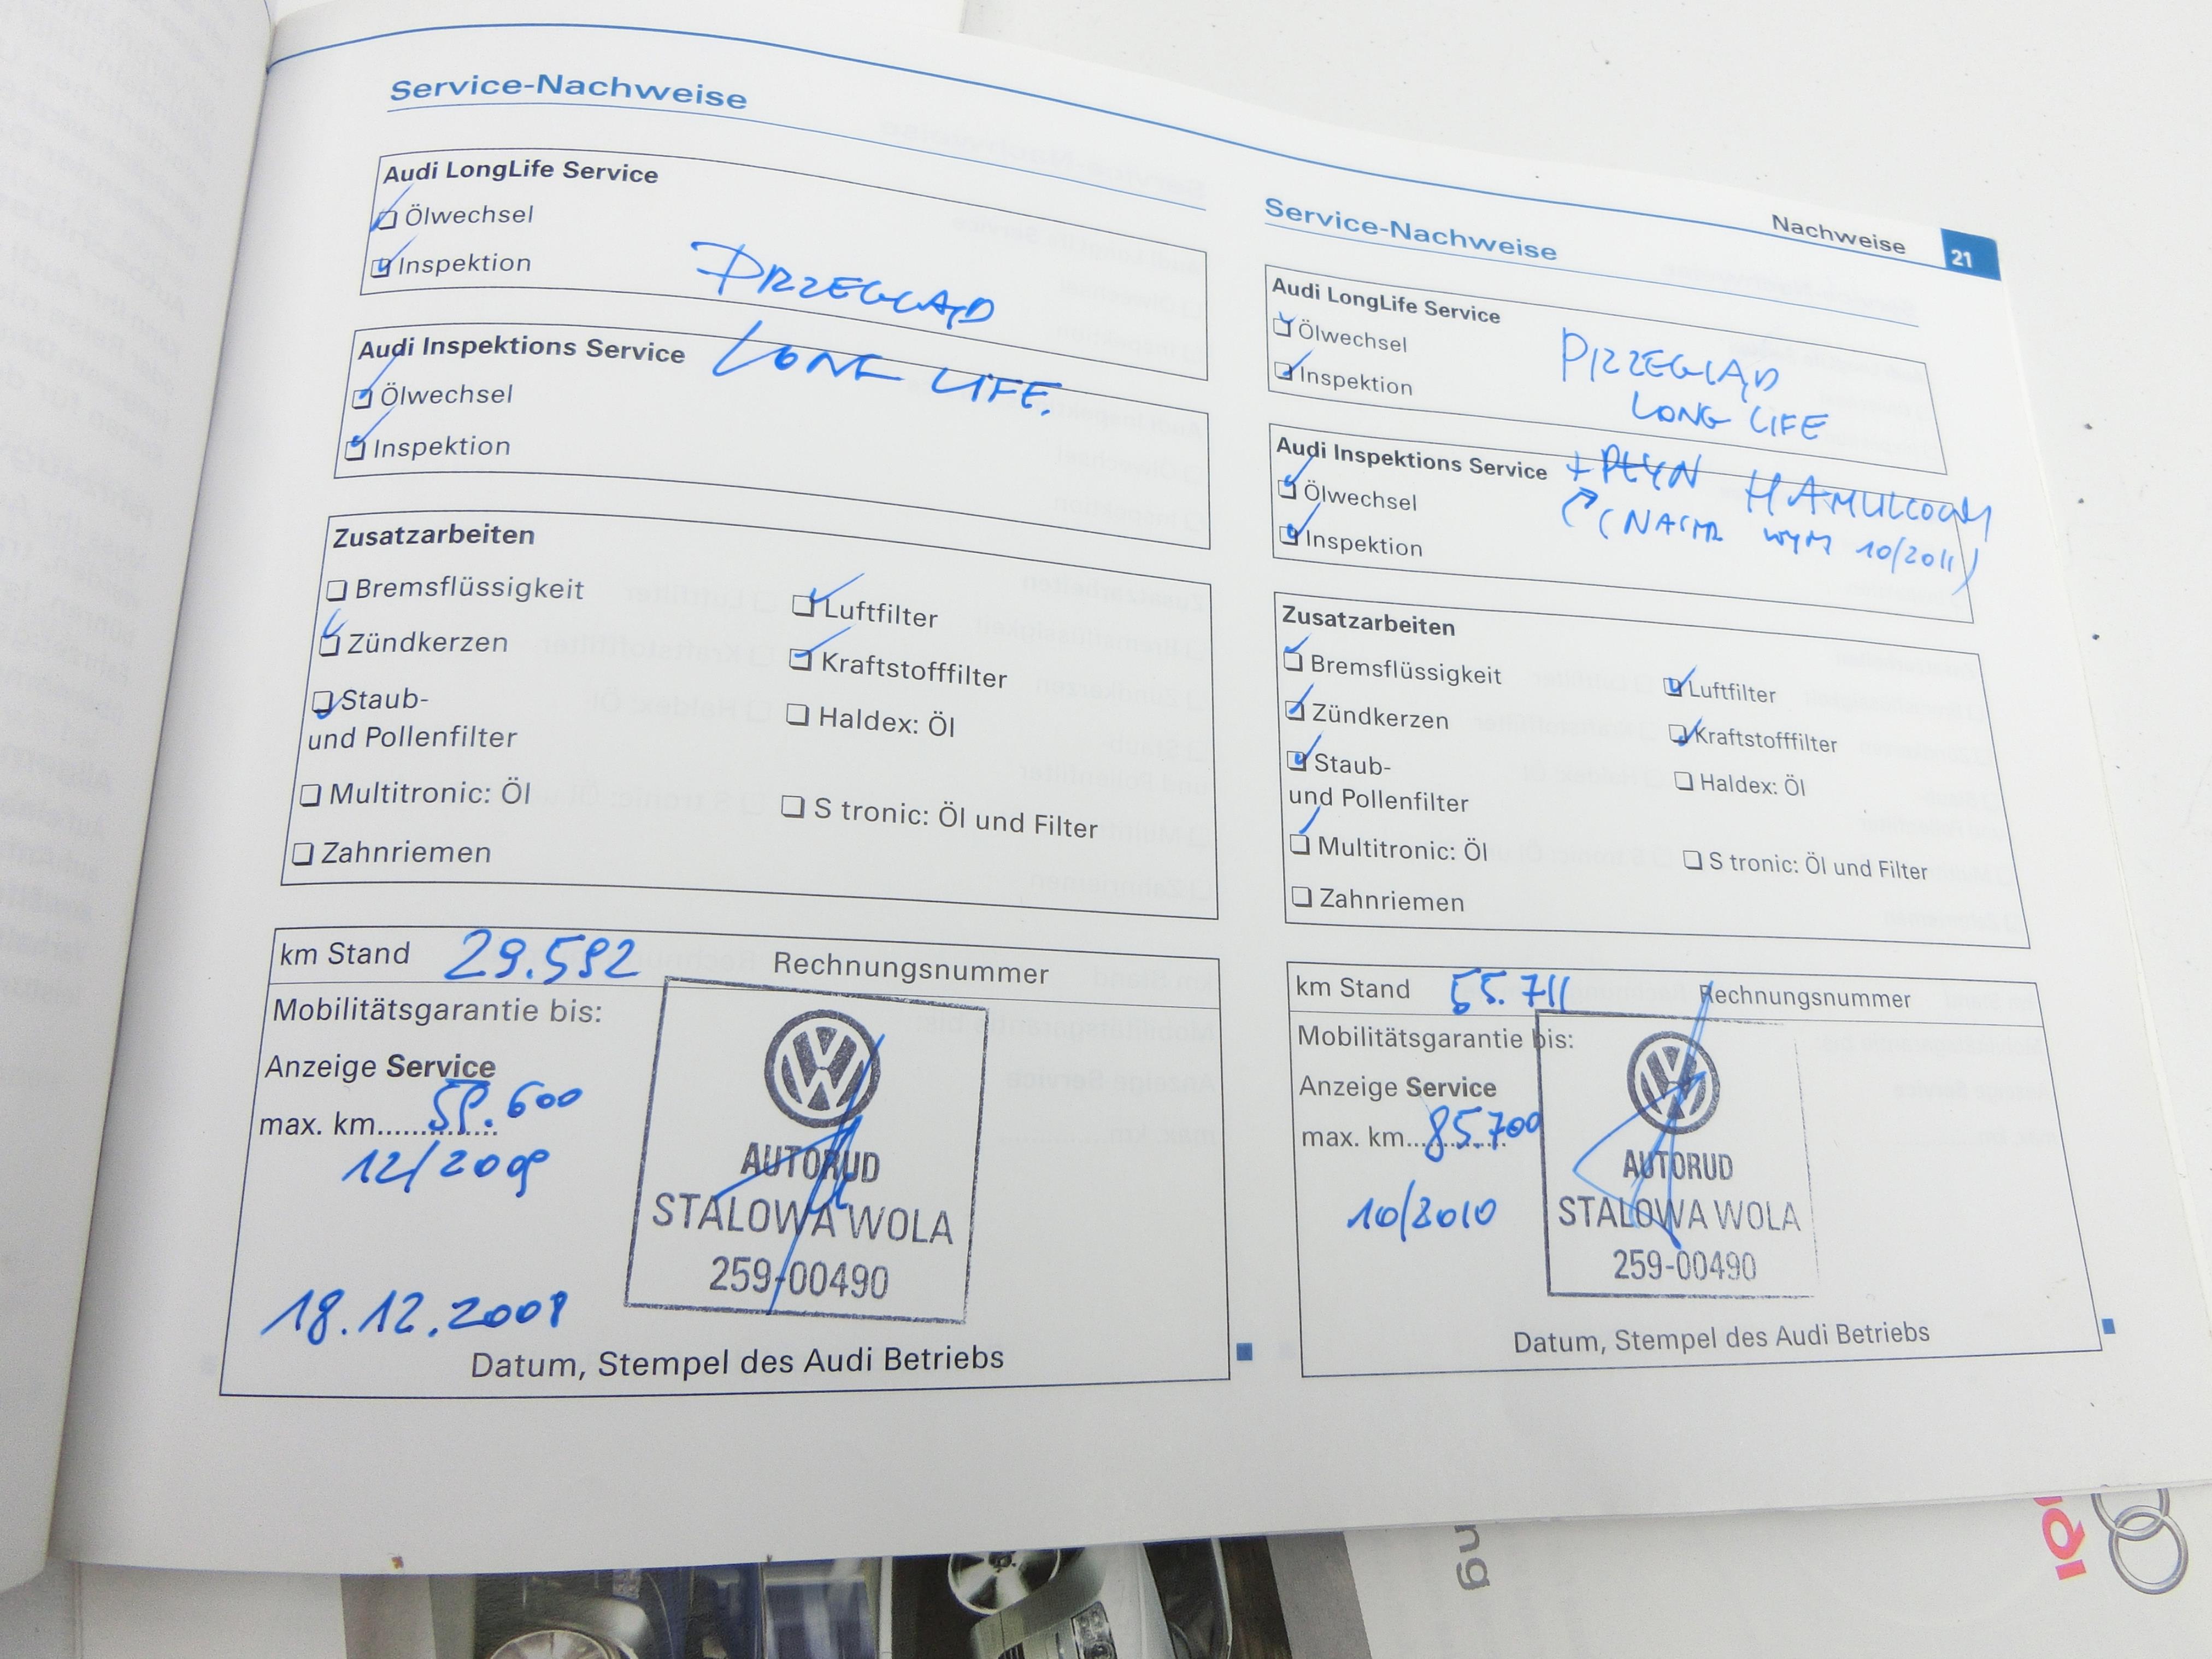 Service-Nachweise
Audi LongLife Service
Ölwechsel
Inspektion
PRZEGLĄD
LONG LIFE.
Audi Inspektions Service
Ölwechsel
Inspektion
Zusatzarbeiten
Bremsflüssigkeit
Luftfilter
Zündkerzen
Kraftstofffilter
Staub-
und Pollenfilter
Haldex: Öl
Multitronic: Öl
S tronic: Öl und Filter
Zahnriemen
km Stand 29.592 Rechnungsnummer
Mobilitätsgarantie bis:
Anzeige Service
max. km.............. 59.600
12/2009
18.12.2008
AUTORUD
STALOWA WOLA
259-00490
Datum, Stempel des Audi Betriebs
Nachweise 21
Service-Nachweise
Audi LongLife Service
Ölwechsel
Inspektion
PRZEGLĄD
LONG LIFE
Audi Inspektions Service
+ PŁYN HAMULCOWY
(NASTR WYM 10/2011)
Ölwechsel
Inspektion
Zusatzarbeiten
Bremsflüssigkeit
Luftfilter
Zündkerzen
Kraftstofffilter
Staub-
und Pollenfilter
Haldex: Öl
Multitronic: Öl
S tronic: Öl und Filter
Zahnriemen
km Stand 55.711 Rechnungsnummer
Mobilitätsgarantie bis:
Anzeige Service
max. km.............. 85.700
10/2010
AUTORUD
STALOWA WOLA
259-00490
Datum, Stempel des Audi Betriebs
ng